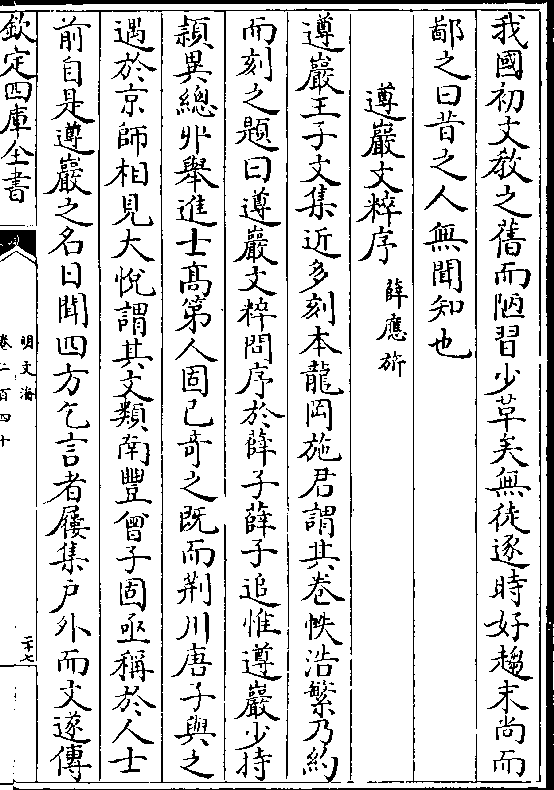 我國初文敎之舊而陋習少革矣無徒逐時好趨末尚而
鄙之曰昔之人無聞知也
遵巖文粹序 薛應旂
遵巖王子文集近多刻本龍岡施君謂其卷帙浩繁乃約
而刻之題曰遵巖文粹問序於薛子薛子追惟遵巖少持
頴異總丱舉進士髙第人固已奇之既而荆川唐子與之
遇於京師相見大悦謂其文類南豐曾子固亟稱於人士
前自是遵巖之名日聞四方乞言者屨集户外而文遂傳
欽定四庫全書
明文海
卷二百四十
二十七